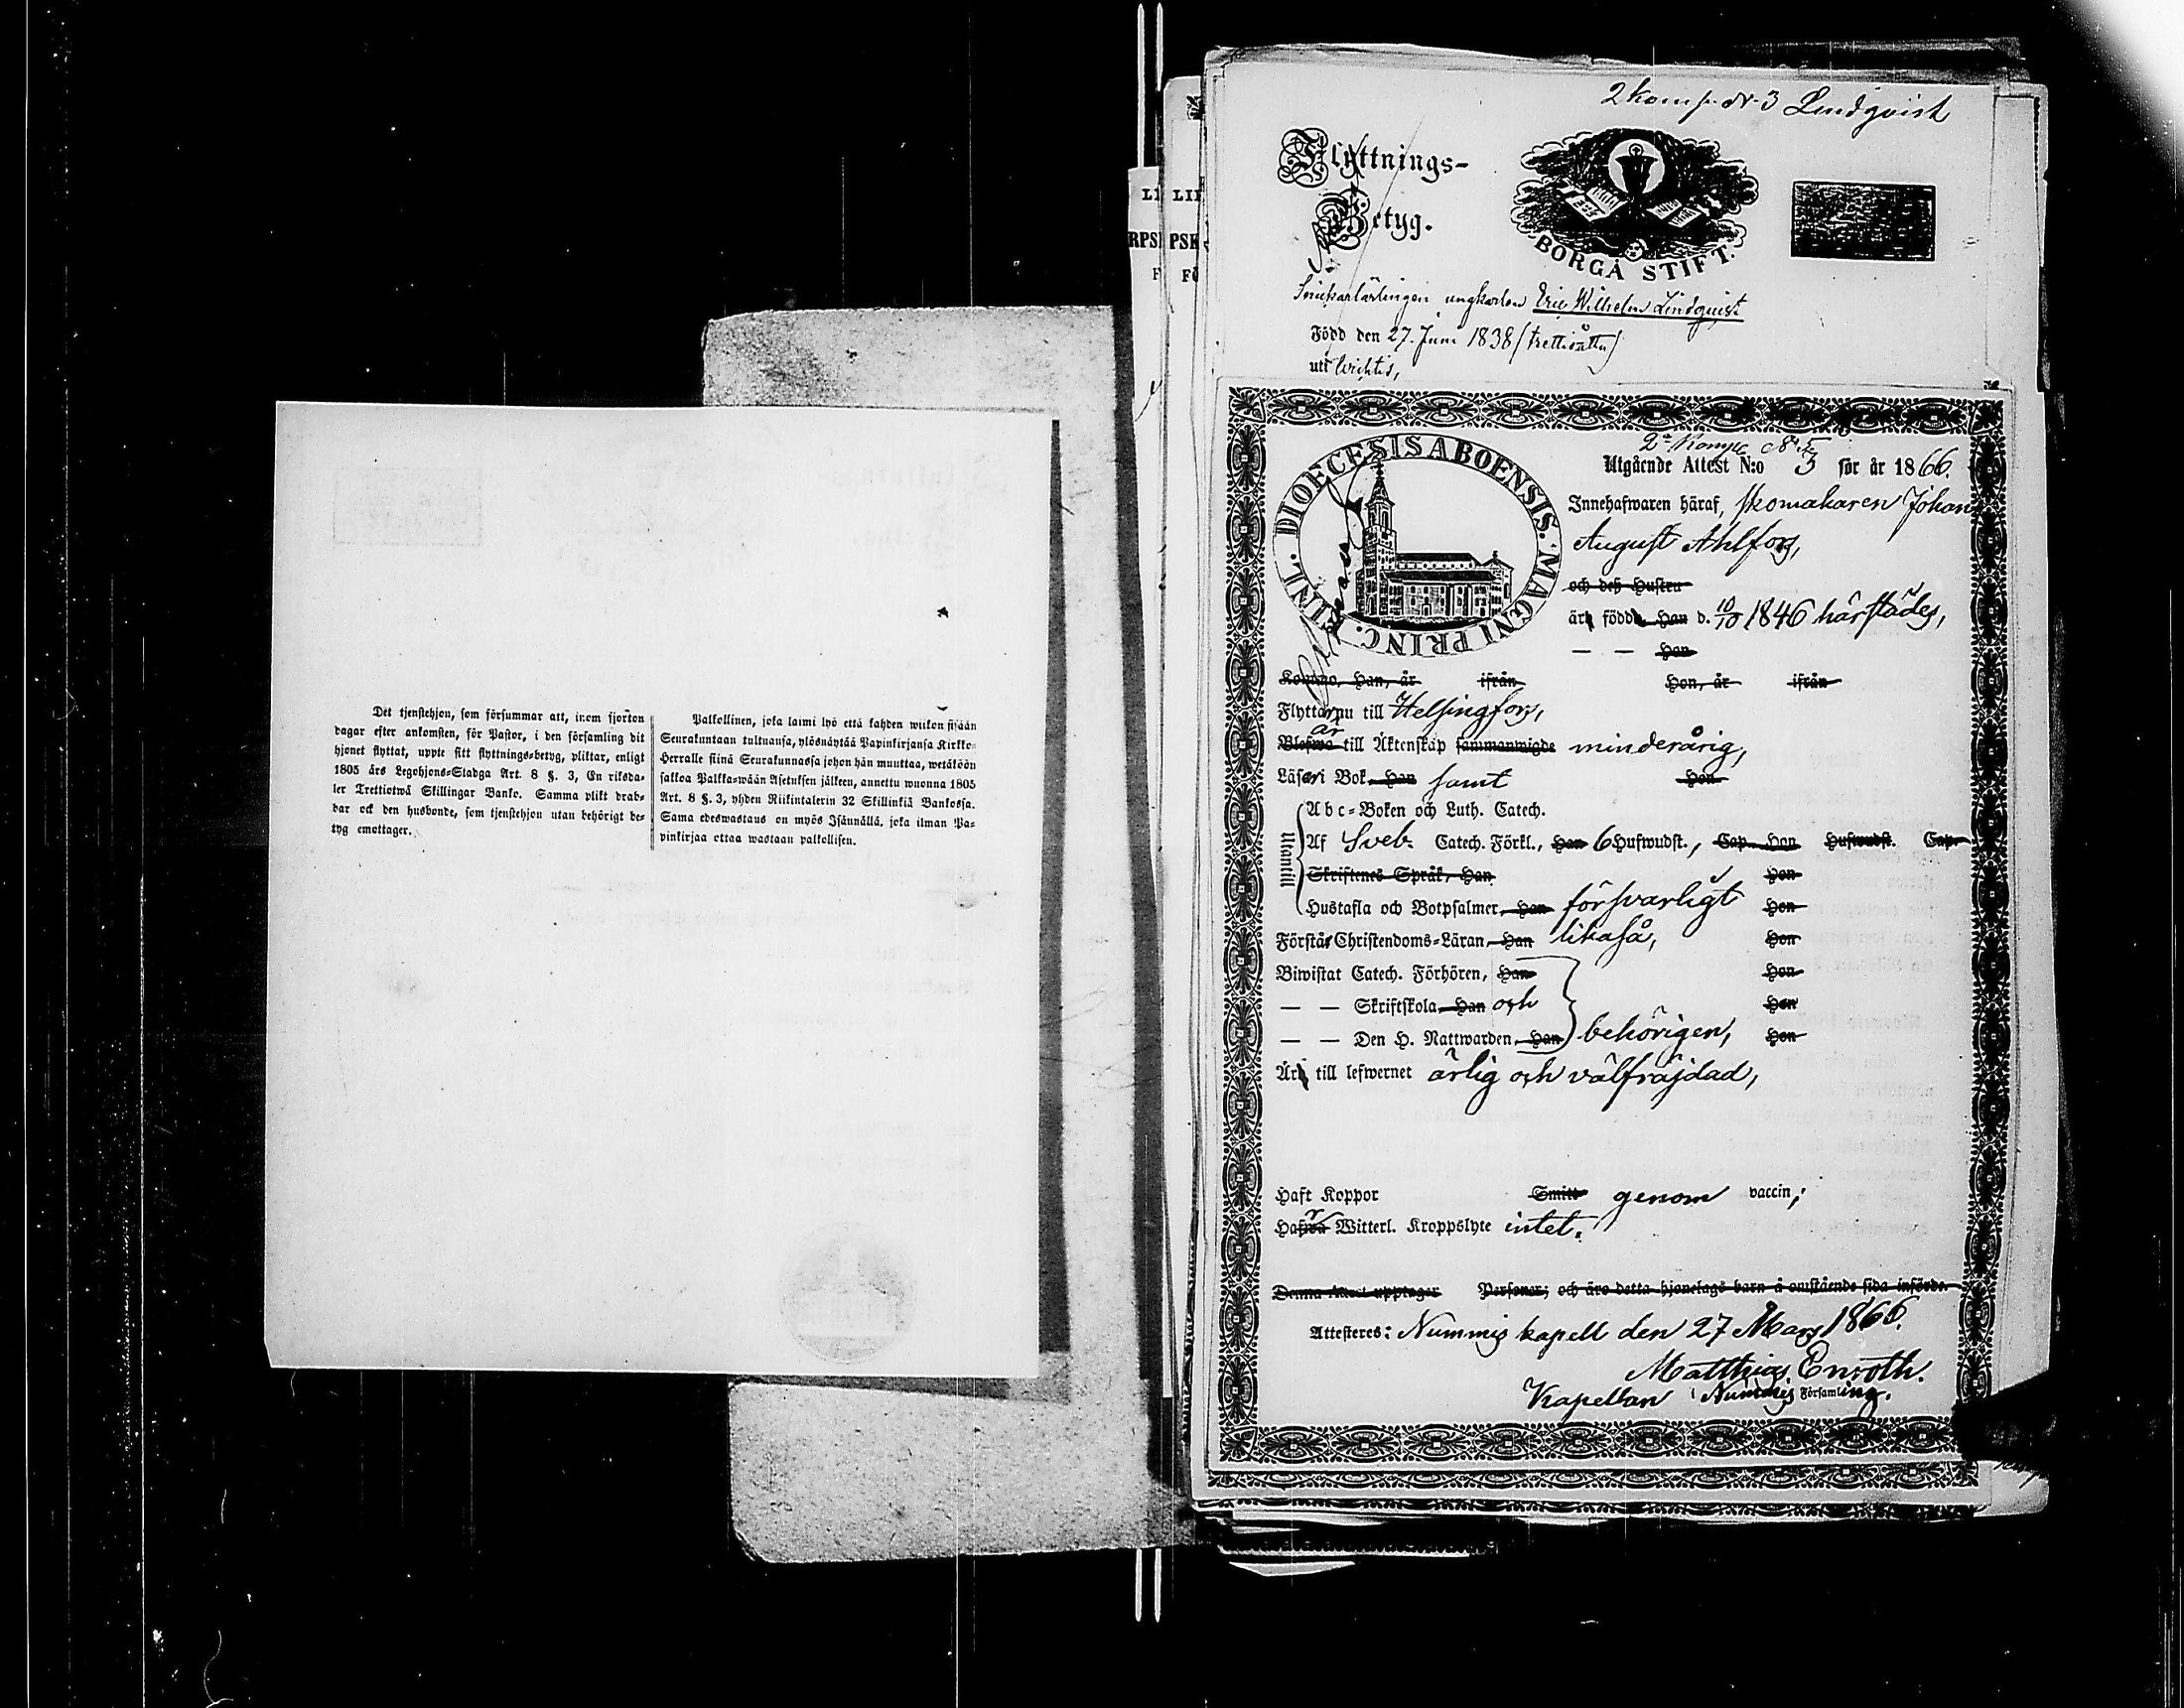 Det tjenstehjon, som försummar att, inom fjorton
dagar efter ankomsten, för Pastor, i den församling dit
hjonet flyttat, uppte sitt flyttnings-betyg, pliktar, enligt
1805 års Legohjons-Stadga Art. 8 §. 3, En riksda-
ler Trettiotwå Skillingar Banko. Samma plikt drab-
bar ock den husbonde, som tjenstehjon utan behörigt be-
tyg emottager.
Palkollinen, joka laimi lyö että kahden wiikon sisään
Seurakuntaan tultuansa, ylösnäytää Papinkirjansa Kirkko-
Herralle siinä Seurakunnassa johon hän muuttaa, wetäköön
sakkoa Palkka-wään Asetuksen jälkeen, annettu wuonna 1805
Art. 8 §. 3, yhden Riikintalerin 32 Skillinkiä Bankossa.
Sama edeswastaus on myös Isännällä, joka ilman Pa-
pinkirjaa ottaa wastaan palkollisen.
LI LII
RPSI PSK
F FÖ
2 komp. N. 3 Lindqvist
Flyttnings-
Betyg.
BORGÅ STIFT.
Snickarlärlingen ungkarlen Eric Wilhelm Lindquist
Född den 27. Juni 1838 (trettioåtta)
uti Wichtis,
DIOECESIS ABOENSIS. MAGNI PRINC. FINL.
2a Komp. N:r 5
Utgående Attest N:o 5 för år 1866.
Innehafwaren häraf, skomakaren Johan
August Ahlfors,
och deß Hustru
är född, Han d. 10/10 1846 härstädes,
— — Hon
Kommo, Han, år ifrån Hon, år ifrån
Flyttar nu till Helsingfors,
är
Blefwo till Äktenskap sammanwigde minderårig,
Läser i Bok, Han samt Hon
Utantill
Abc-Boken och Luth. Catech.
Af Sveb. Catech. Förkl., Han 6 Hufwudst., Cap. Hon Hufwudst. Cap.
Skriftenes Språk, Han Hon
Hustafla och Botpsalmer, Han försvarligt Hon
Förstår Christendoms-Läran, Han likaså, Hon
Biwistat Catech. Förhören, Han Hon
— — Skriftskola, Han och Hon
— — Den H. Nattwarden, Han behörigen, Hon
Är till lefwernet ärlig och välfräjdad,
Haft Koppor Smitt genom vaccin,;
Har Witterl. Kroppslyte intet.
Denna Attest upptager Personer; och äro detta hjonelags barn å omstående sida införde.
Attesteres: Nummis kapell den 27 Mars 1866.
Matthias Enroth.
Kapellan i Nummis Församling.